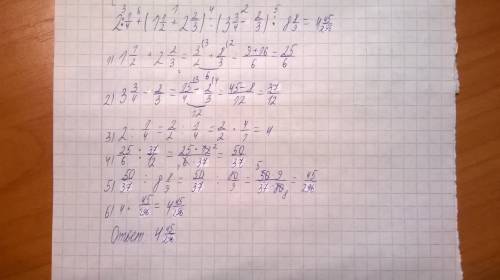 2 : 1/4 + (1 1/2 + 2 2/3) : (3 3/4 - 2/3) : 8 8/9 = 4 45/296
1) 1 1/2 + 2 2/3 = 3/2 + 8/3 = 9+16/6 = 25/6
2) 3 3/4 - 2/3 = 15/4 - 2/3 = 45-8/12 = 37/12
3) 2 : 1/4 = 2/1 : 1/4 = 2/1 · 4/1 =
4) 25/6 : 37/12 = 25 · 12 2/6 · 37 = 50/37
5) 50/37 : 8 8/9 = 50/37 : 80/9 = 5 50 · 9/37 · 80 8 = 45/296
6) 4 + 45/296 = 4 45/296
Ответ 4 45/296